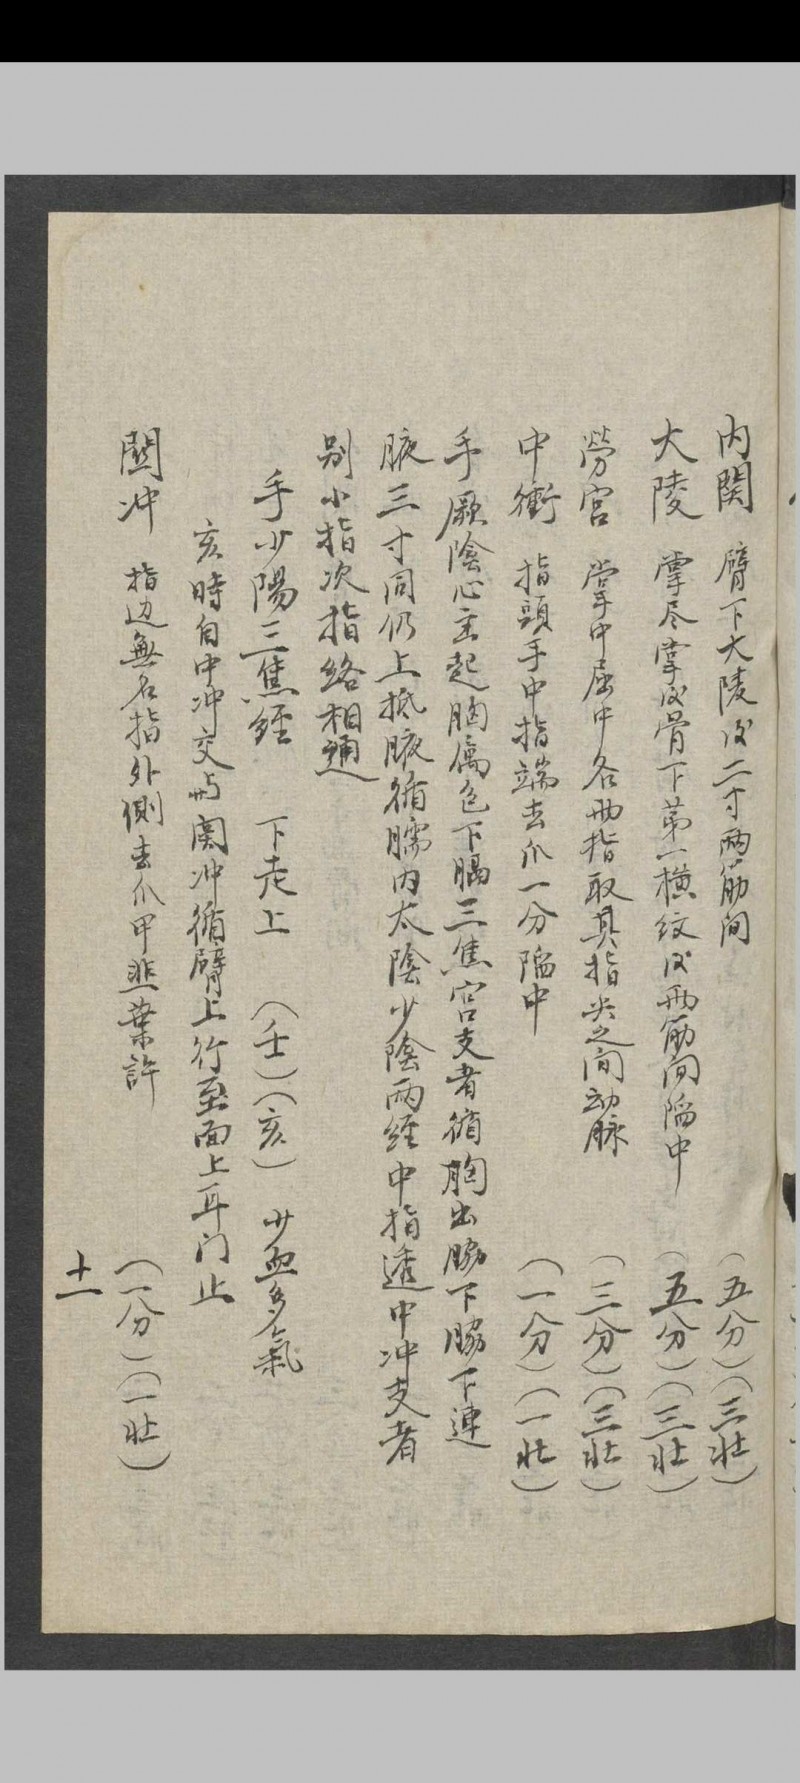 内関　臂下大陵后二寸两筋间　（五分）（三壮）
大陵　掌尽掌后骨下第一横纹后两筋间陷中　（五分）（三壮）
勞宫　掌中屈中名两指取其指尖之间动脉　（三分）（三壮）
中衝　指頭手中指端去爪一分陷中　（一分）（一壮）
手厥陰心主起胸属包下膈三焦宫支者循胸出脇下脇下連
腋三寸同仍上抵腋循臑内太陰少陰两経中指透中冲支者
别小指次指络相通
手少陽三焦経　下走上　（壬）（亥）　少血多氣
亥時自中冲交与関冲循臂上行至面上耳门止
関冲　指边無名指外側去爪甲韭葉許　（一分）（一壮）
十一